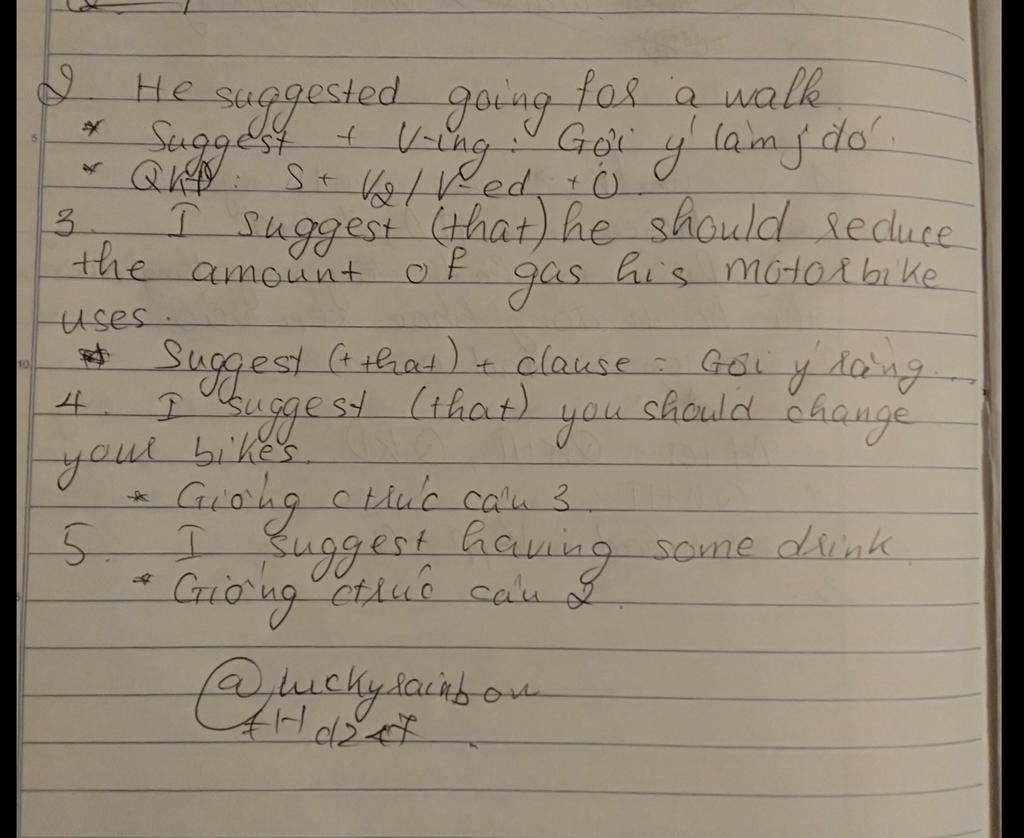 2. He suggested going for a walk.
* Suggest + V-ing : Gợi ý làm j đó.
* QKĐ : S + V2/V-ed + O.
3. I suggest (that) he should reduce
the amount of gas his motorbike
uses.
* Suggest (+that) + clause : Gợi ý rằng...
4. I suggest (that) you should change
your bikes.
* Giống ctrúc câu 3
5. I suggest having some drink
* Giống ctrúc câu 2.
@luckyrainbow
#Hd247